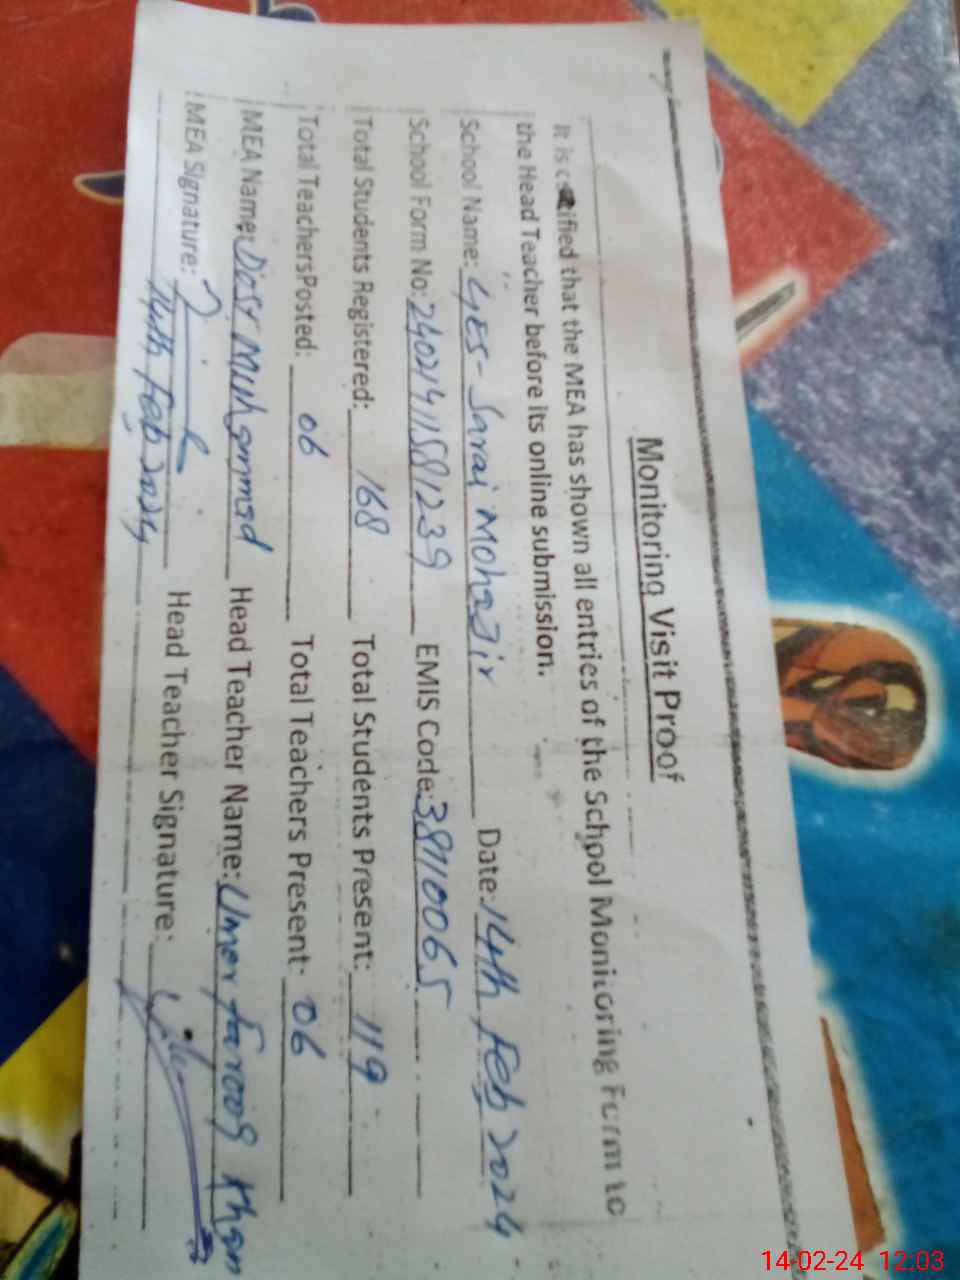 Monitoring Visit Proof
It is certified that the MEA has shown all entries of the School Monitoring Form to
the Head Teacher before its online submission.
School Name: GES- Sarai Mohajir Date: 14th Feb 2024
School Form No: 24021411581239 EMIS Code: 38110065
Total Students Registered: 168 Total Students Present: 119
Total TeachersPosted: 06 Total Teachers Present: 06
MEA Name: Dost Muhammad Head Teacher Name: Umer farooq Khan
MEA Signature: Head Teacher Signature:
14th Feb 2024
14-02-24 12:03